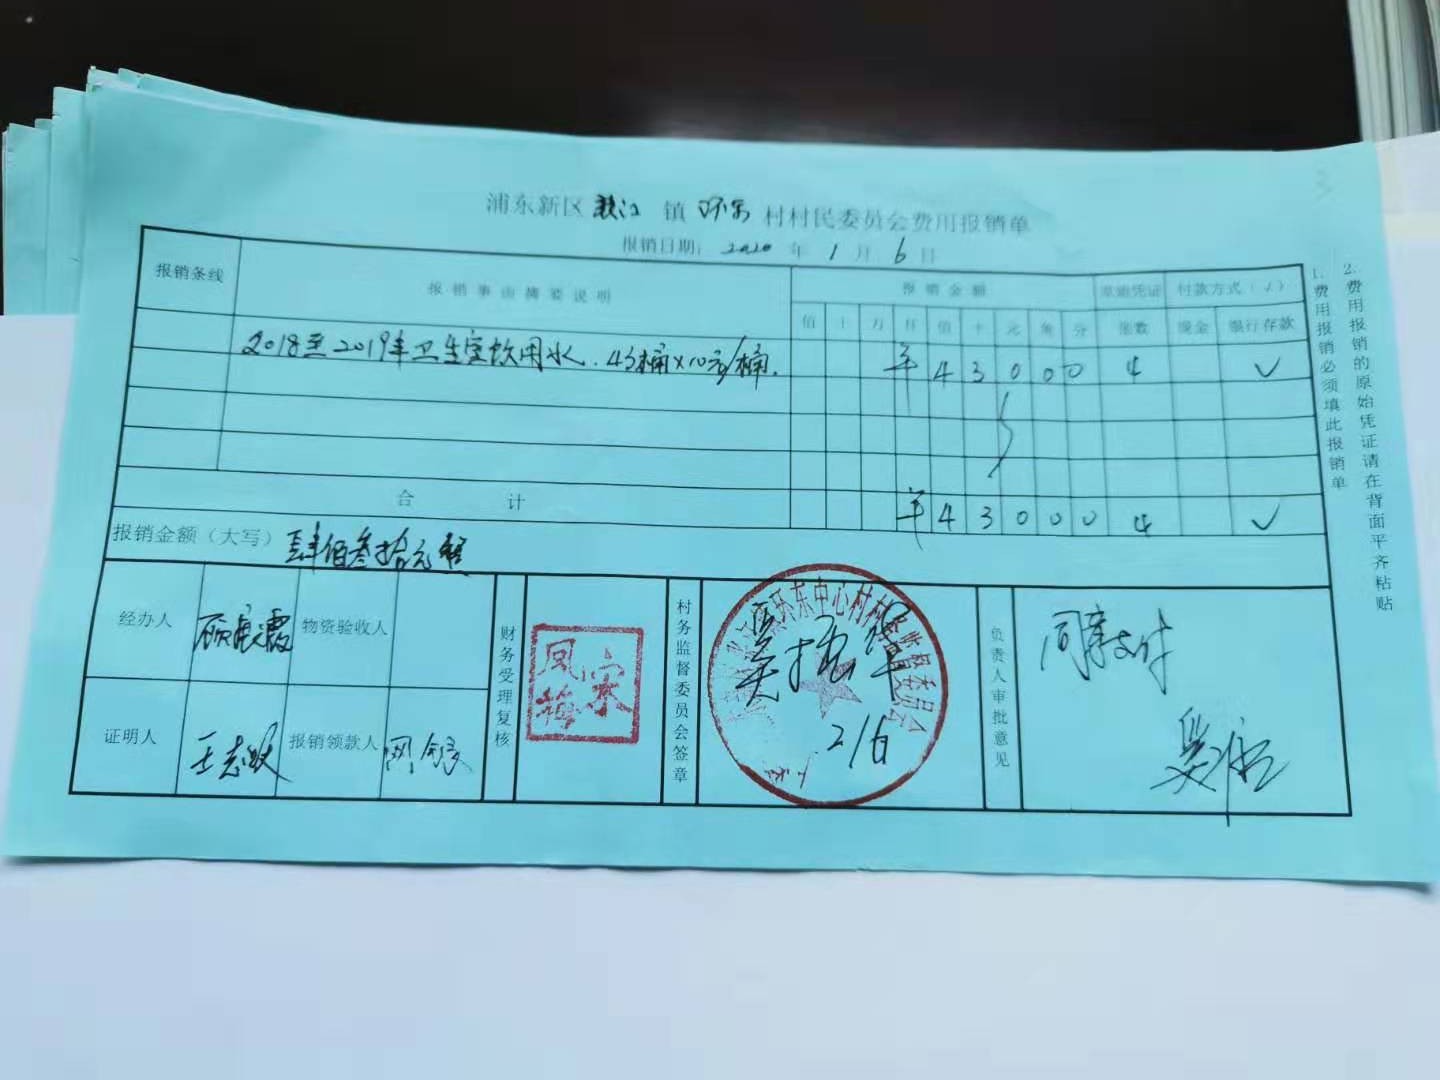 浦东新区 张江 镇 环东 村村民委员会费用报销单
报销日期: 2020 年 1 月 6 日
报销条线 报销事由摘要说明 报销金额 原始凭证 付款方式(√)
佰 十 万 仟 佰 十 元 角 分 张数 现金 银行存款
2018至2019年卫生室饮用水.43桶×10元/桶. ¥ 4 3 0 0 0 4 √
合 计 ¥ 4 3 0 0 0 4 √
报销金额(大写) 肆佰叁拾元整
经办人 物资验收人
证明人 王志 报销领款人
财务受理复核
宋凤梅
村务监督委员会签章
环东中心村村务监督委员会
2/6
负责人审批意见
同意支付
1.费用报销必须填此报销单
2.费用报销的原始凭证请在背面平齐粘贴